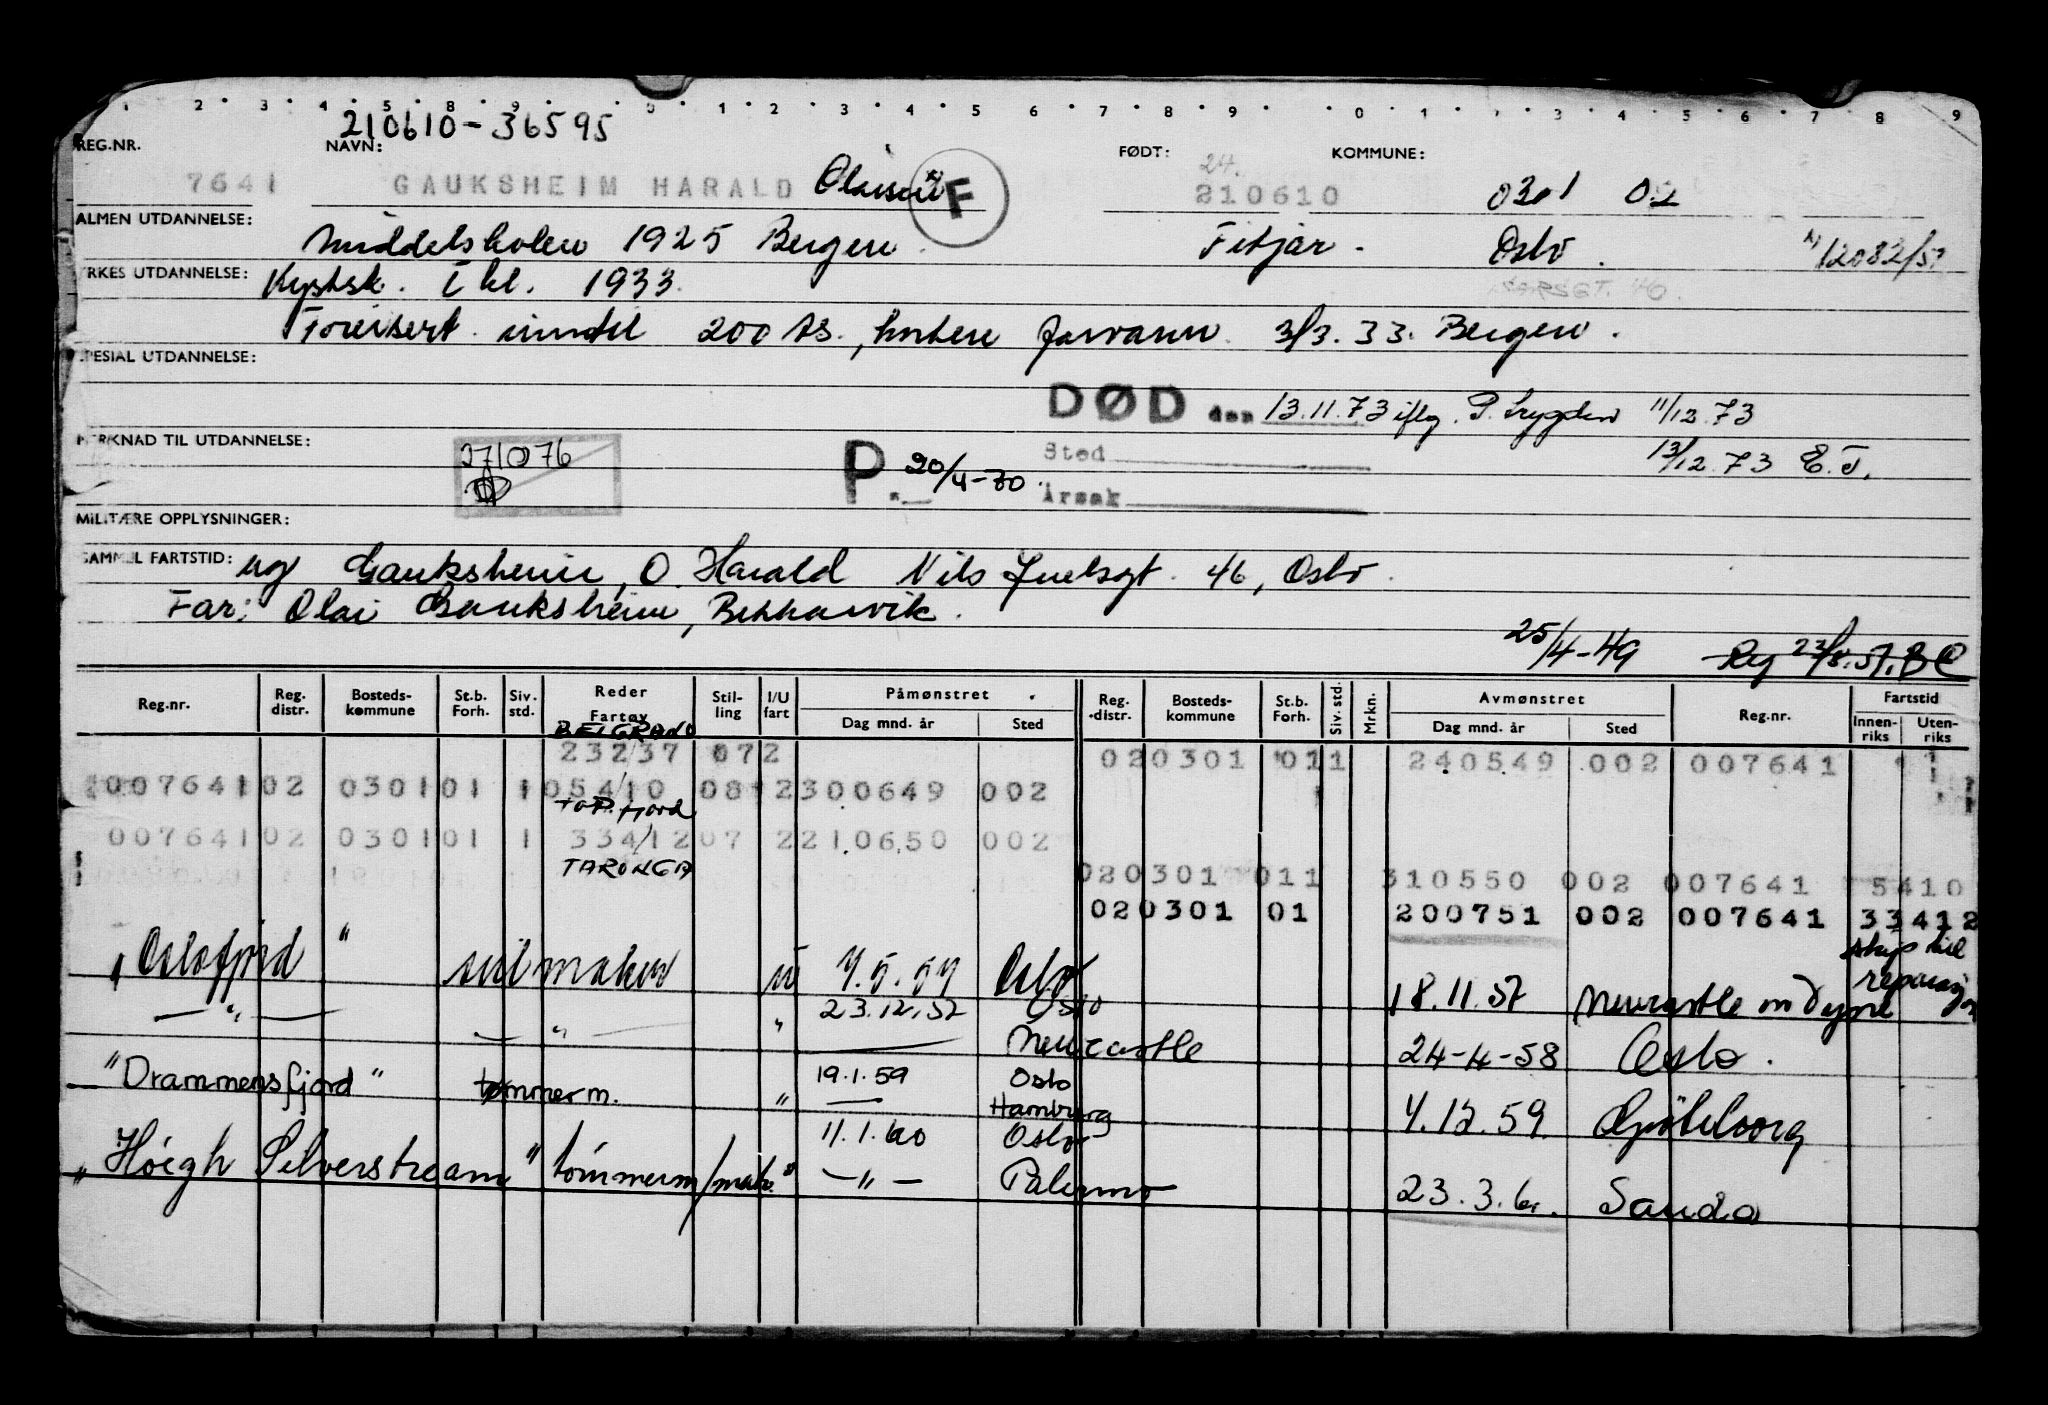 1 2 3 4 5 8 9 0 1 2 3 4 5 6 7 8 9 0 1 2 3 4 5 6 7 8 9
210610-36595
REG.NR. NAVN: FØDT: 24. KOMMUNE:
7641 GAUKSHEIM HARALD F 210610 0301 02
ALMEN UTDANNELSE: Middelskolen 1925 Bergen Fitjar. Oslo. 12082/57
YRKES UTDANNELSE: Kystsk. I kl. 1933.
200 ts., farvann. 3/3.33. Bergen.
SPESIAL UTDANNELSE:
DØD den 13.11.73 iflg. P. Trygden 11/12.73
MERKNAD TIL UTDANNELSE: 271076 P 20/4-70. Sted 13/12.73 E.T.
Årsak
MILITÆRE OPPLYSNINGER:
SAMMEL FARTSTID: ug Gauksheim, O. Harald Nils Juelsgt. 46, Oslo.
Far: Olai Gauksheim, Bekkarvik.
25/4-49 Reg 23/8.57. BC
Reg.nr. Reg. distr. Bosteds-kommune St.b. Forh. Siv. std. Reder Fartøy Stil-ling I/U fart Påmønstret Dag mnd. år Sted Reg. distr. Bosteds-kommune St.b. Forh. Siv. std. Mrkn. Avmønstret Dag mnd. år Sted Reg.nr. Fartstid Innen-riks Uten-riks
BELGRANO
232/37 072 020301 011 240549 002 007641
007641 02 0301 01 1 054/10 08 2 300649 002
TOP. fjord
007641 02 0301 01 1 334/12 07 2 210650 002
TARONGA 020301 011 310550 002 007641 5410
020301 01 200751 002 007641 33412
"Oslofjord" seilmaker u 7.5.57 Oslo 18.11.57 Newcastle on Tyne skip til reparasjon
— " — 23.12.57 Oslo
— " — " — Newcastle 24-4-58 Oslo.
"Drammensfjord" tømmerm. " 19.1.59 Oslo
— Hamburg 4.12.59. Gøteborg
11.1.60 Oslo
"Höegh Silverstream" tømmerm/mask. " — " — Palermo 23.3.61. Sauda